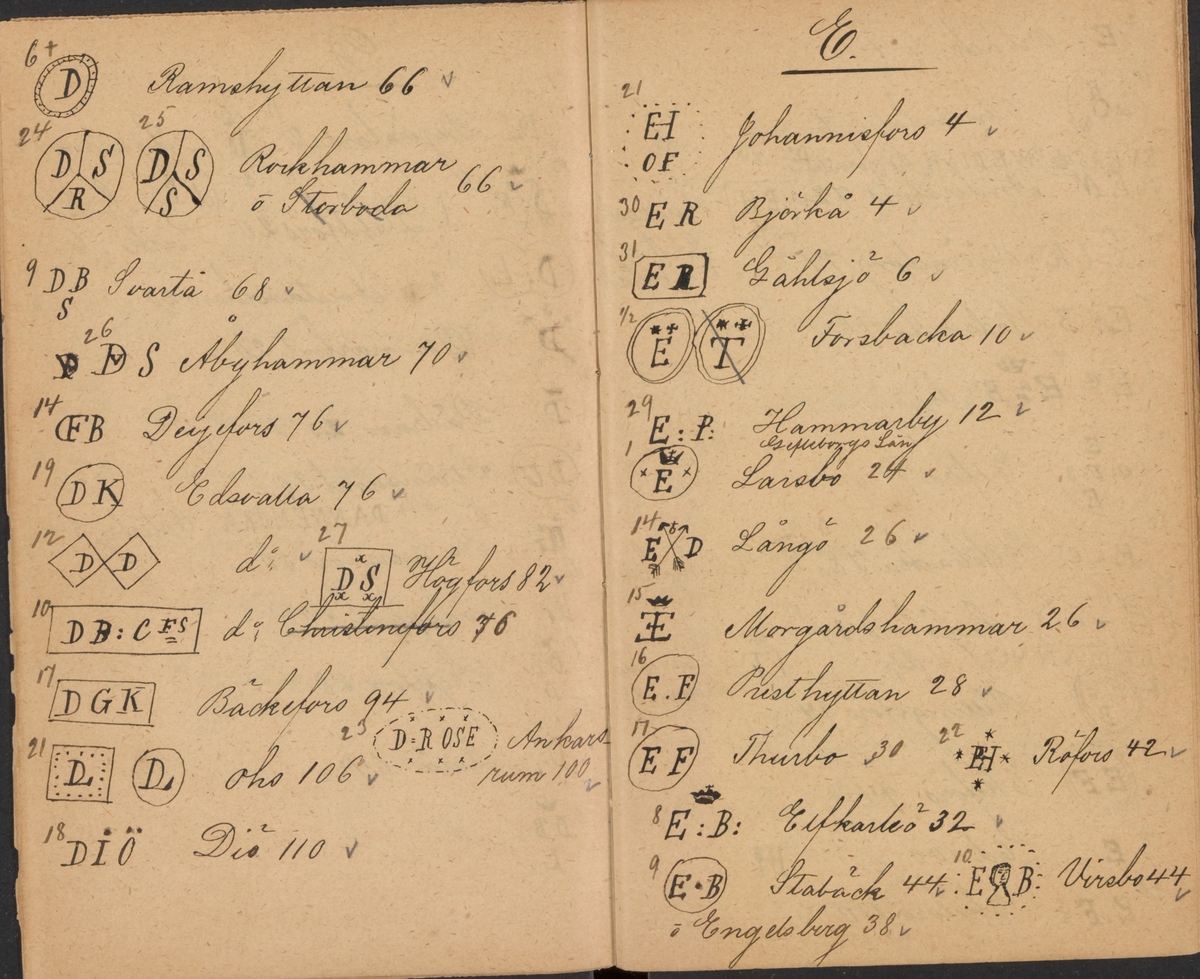 6+ D Ramshyttan 66
24 D S R 25 D S S Rockhammar
ō Storboda 66
9 D B S Svartå 68
26 D S Åbyhammar 70
14 Œ F B Degefors 76
19 D K Edsvalla 76
12 D D do 27 D S Högfors 82
10 D B : C F S do Christinefors 76
17 D G K Bäckefors 94
21 D. D. ohs 106 23 D = R OSE Ankars
rum 100
18 D I Ö Diö 110
E.
21 E H OF Johannisfors 4
30 E R Björkå 4
31 E R Gåhlsjö 6
1/2 E T Forsbacka 10
29 E : P : Hammarby 12
Gefleborgs Län
1 E Larsbo 24
14 E D Långö 26
15 E Morgårdshammar 26
16 E . F Presthyttan 28
17 E F Thurbo 30 22 E H Röfors 42
8 E : B : Elfkarleö 32
9 E · B Stabäck 44 10 E B : Virsbo 44
ō Engelsberg 38